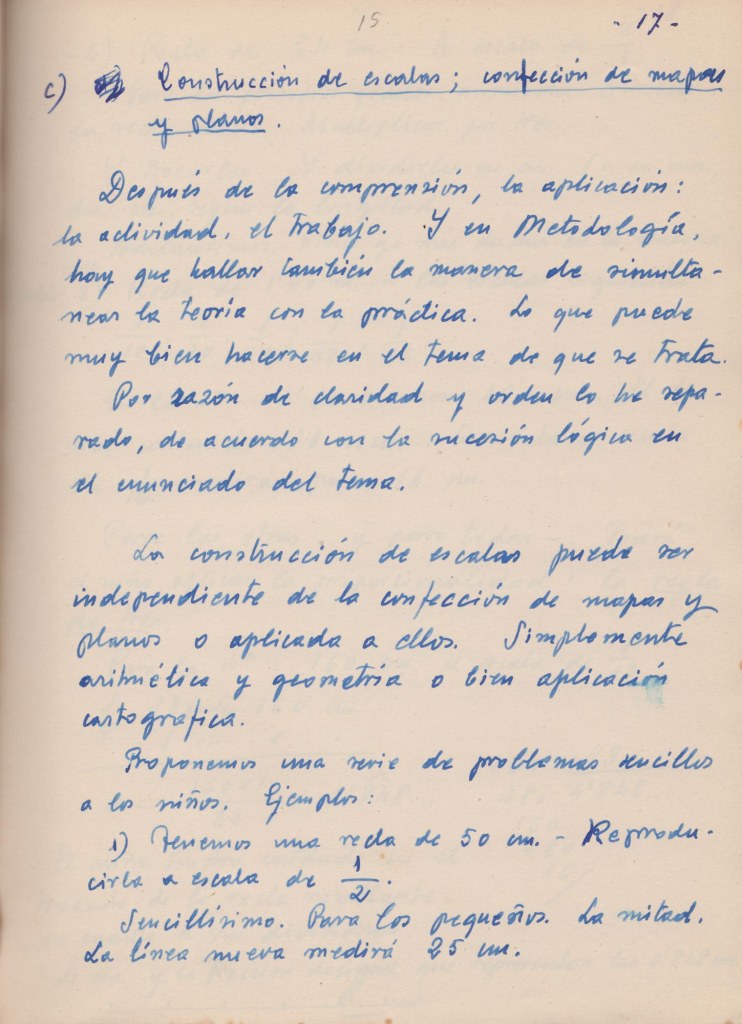 15
- 17 -
c) Construcción de escalas; confección de mapas
y planos.
Después de la comprensión, la aplicación:
la actividad, el trabajo. Y en Metodología,
hay que hallar también la manera de simulta-
near la teoría con la práctica. Lo que puede
muy bien hacerse en el tema de que se trata.
Por razón de claridad y orden lo he sepa-
rado, de acuerdo con la sucesión lógica en
el enunciado del tema.
La construcción de escalas puede ser
independiente de la confección de mapas y
planos o aplicada a ellos. Simplemente
aritmética y geometría o bien aplicación
cartografica.
Proponemos una serie de problemas sencillos
a los niños. Ejemplos:
1) Tenemos una recta de 50 cm. - Reprodu-
cirla a escala de 1/2.
Sencillísimo. Para los pequeños. La mitad.
La línea nueva medirá 25 cm.